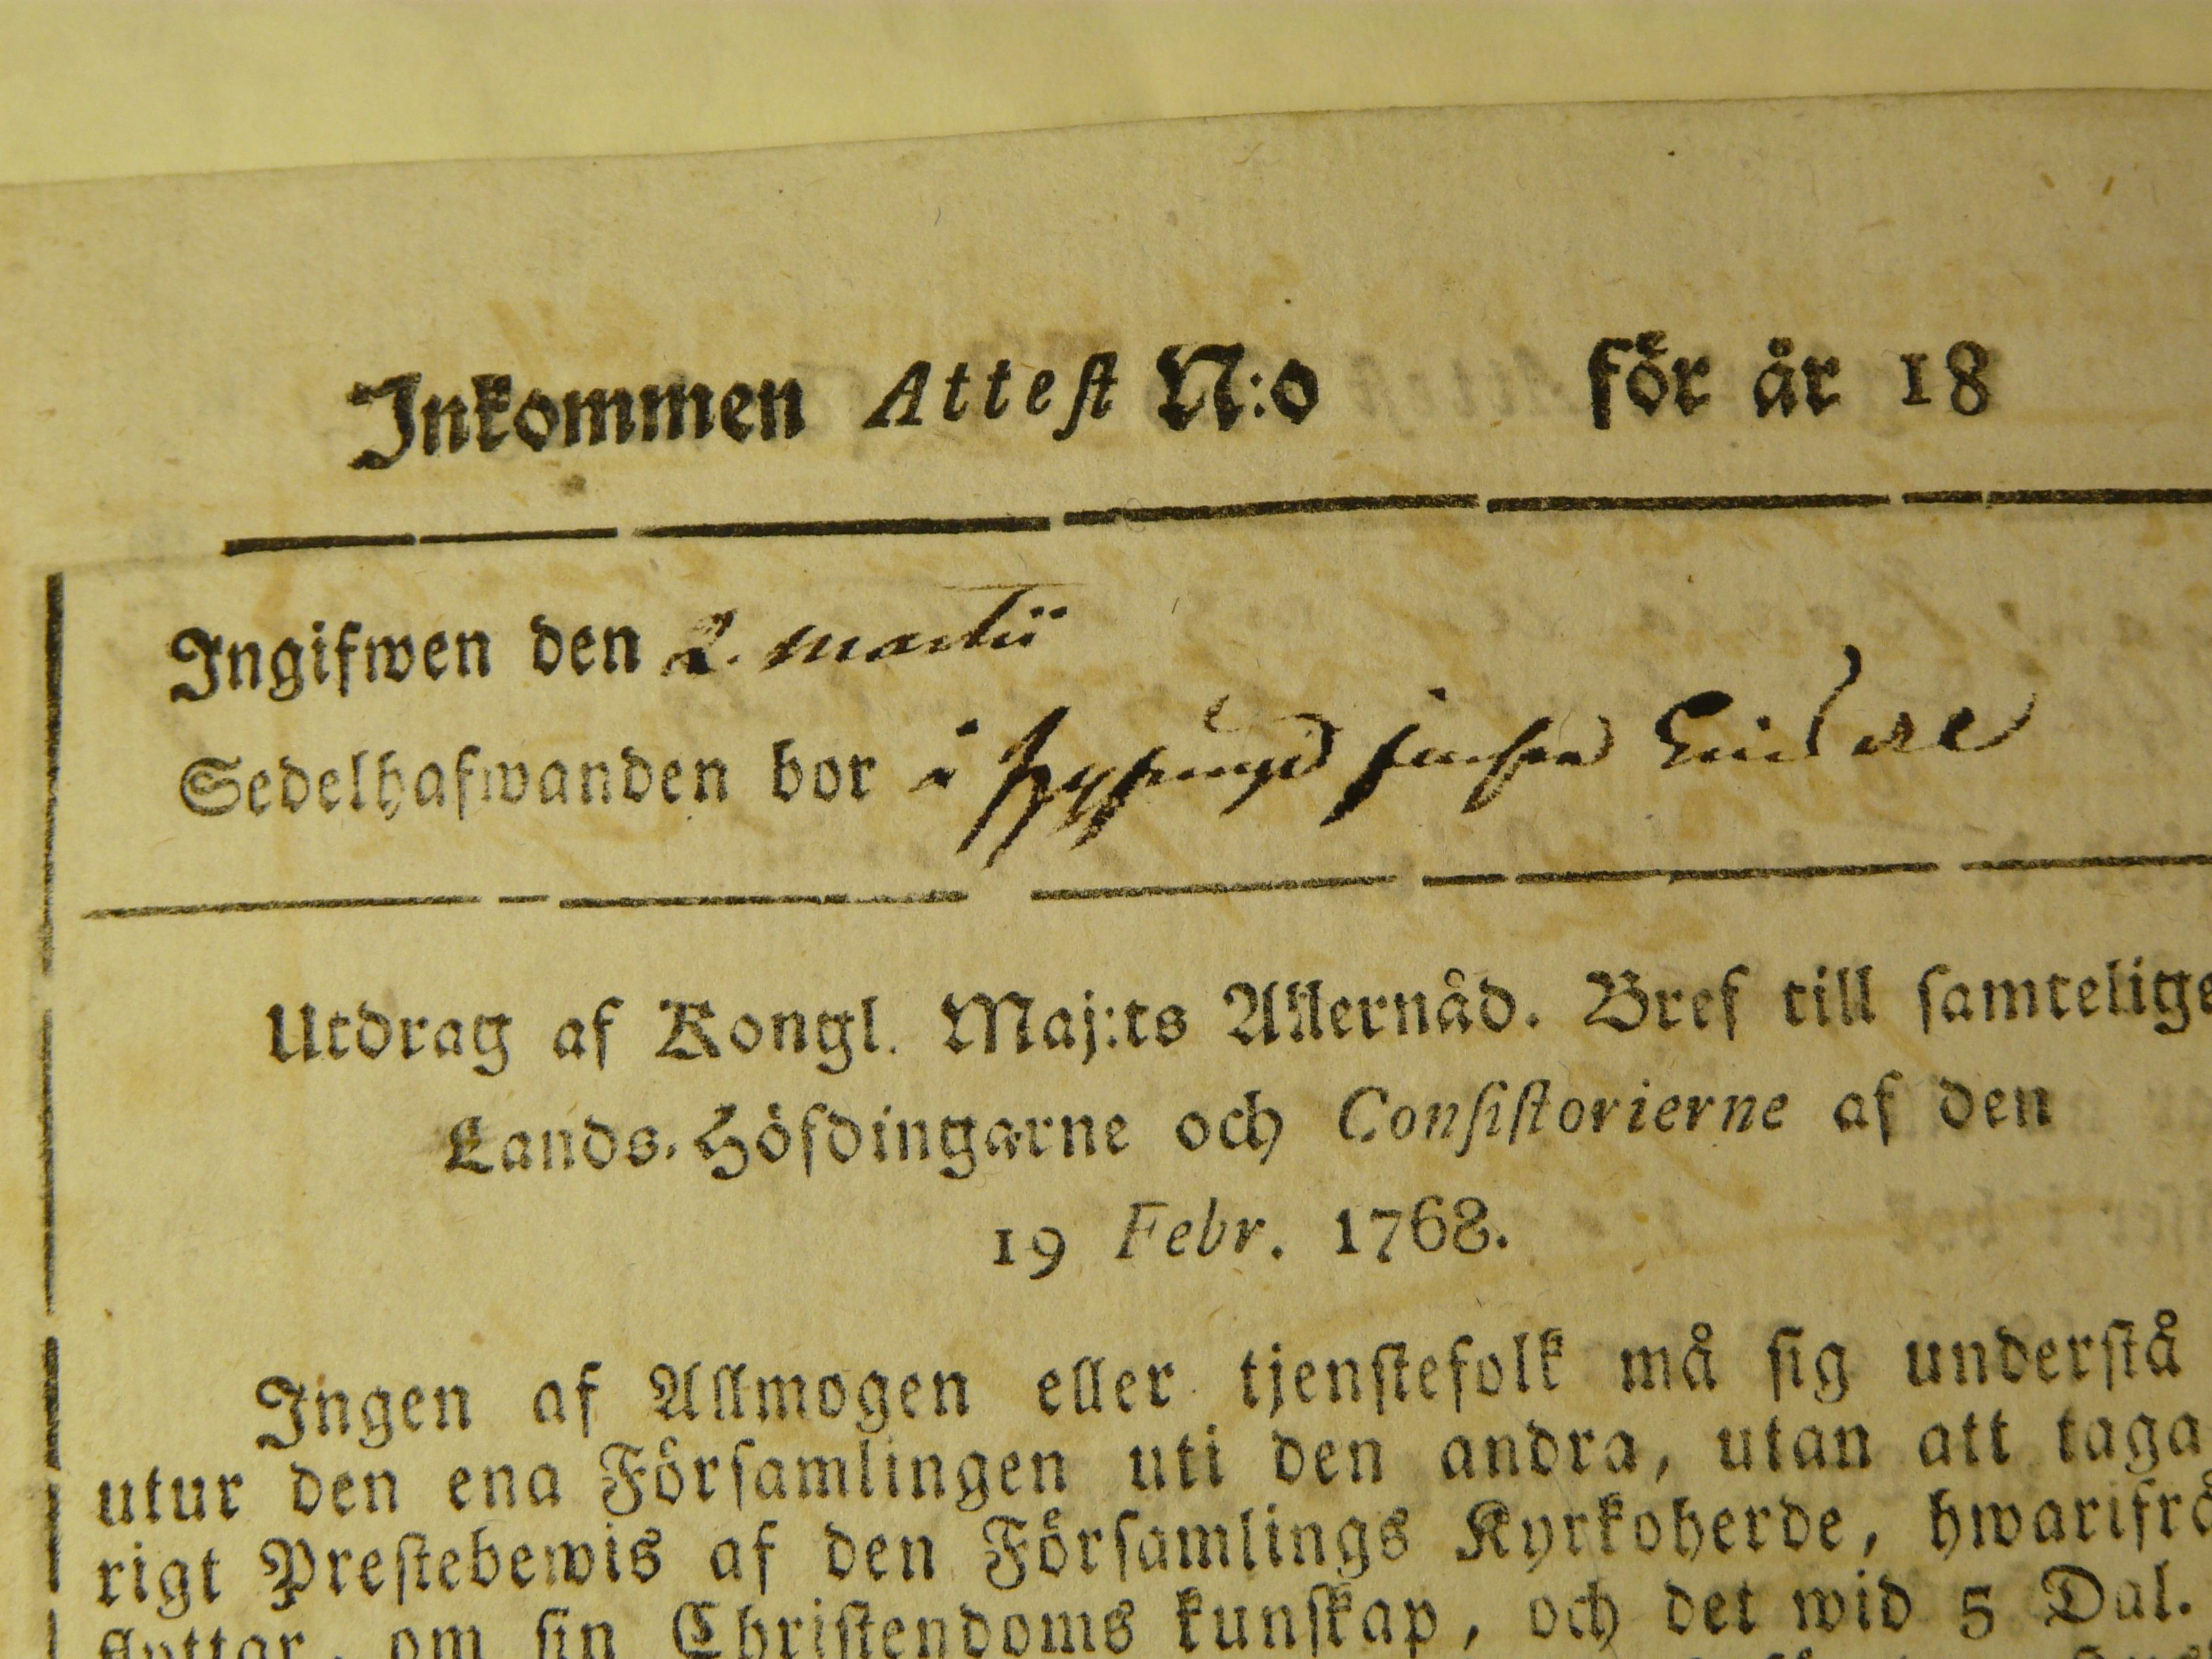 Inkommen Attest N:o för år 18
Ingifwen den 2. martii
Sedelhafwanden bor i
Utdrag af Kongl. Maj:ts Allernåd. Bref till samtelige
Lands-Höfdingarne och Consistorierne af den
19 Febr. 1768.
Ingen af Allmogen eller tjenstefolk må sig understå
utur den ena Församlingen uti den andra, utan att taga
rigt Prestebewis af den Församlings Kyrkoherde, hwarifrå
flyttar, om sin Christendoms kunskap, och det wid 5 Dal.